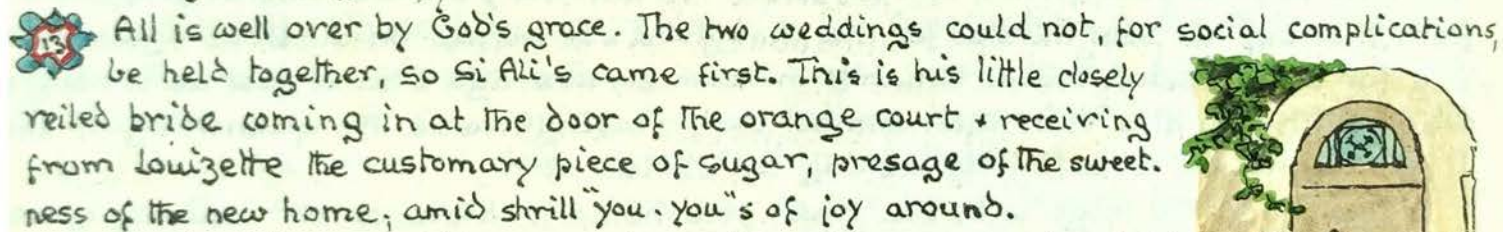 13 All is well over by God's grace. The two weddings could not, for social complications,
be held together, so Si Ali's came first. This is his little closely
veiled bride coming in at the door of the orange court + receiving
from Louizette the customary piece of sugar, presage of the sweet-
ness of the new home, amid shrill "you-you"s of joy around.